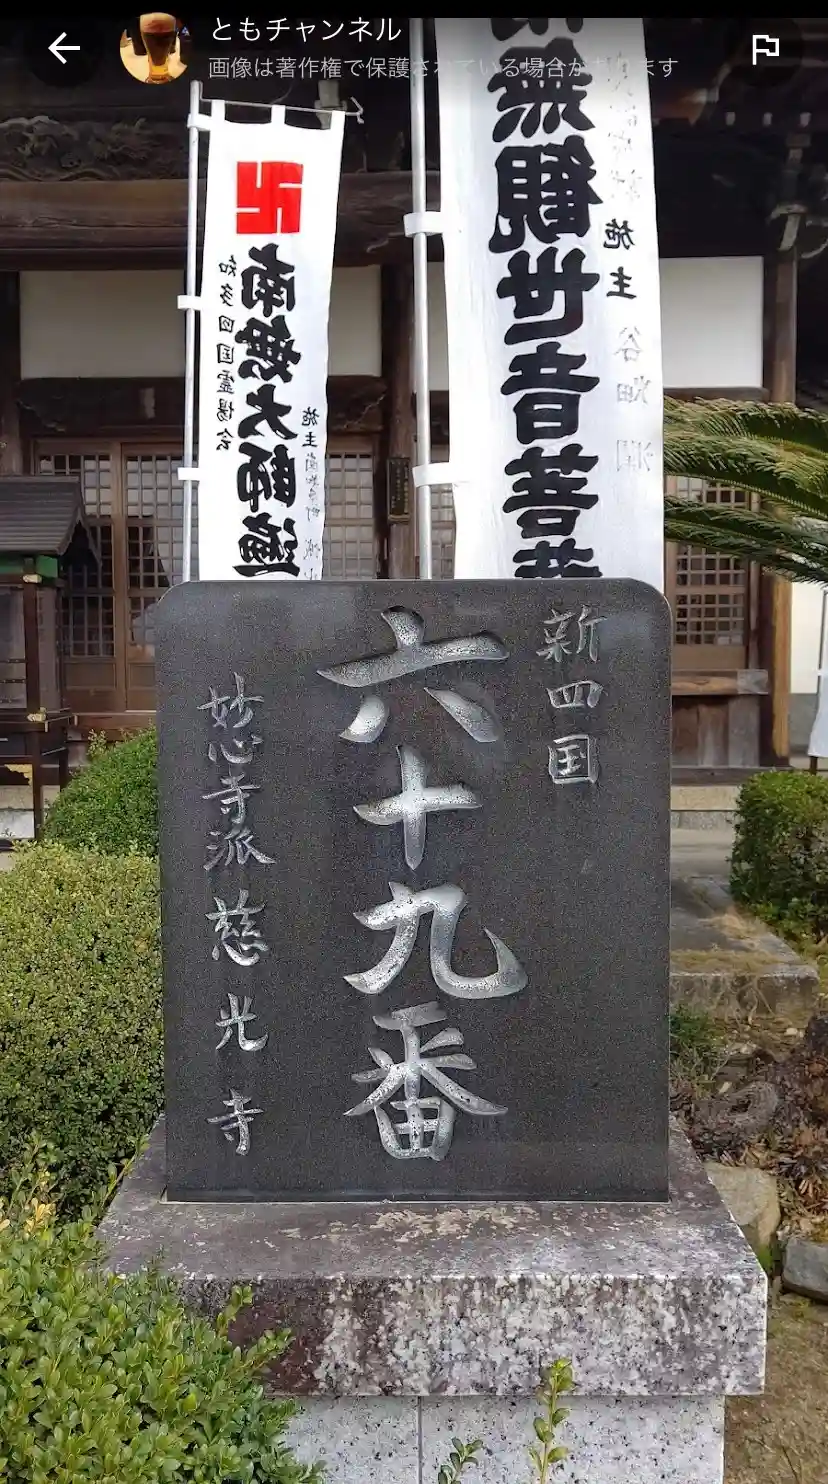 ともチャンネル
画像は著作権で保護されている場合があります
無観世音菩
施主
卍
南無大師遍
知多四国霊場会
施主
新四国
六十九番
妙心寺派 慈光寺